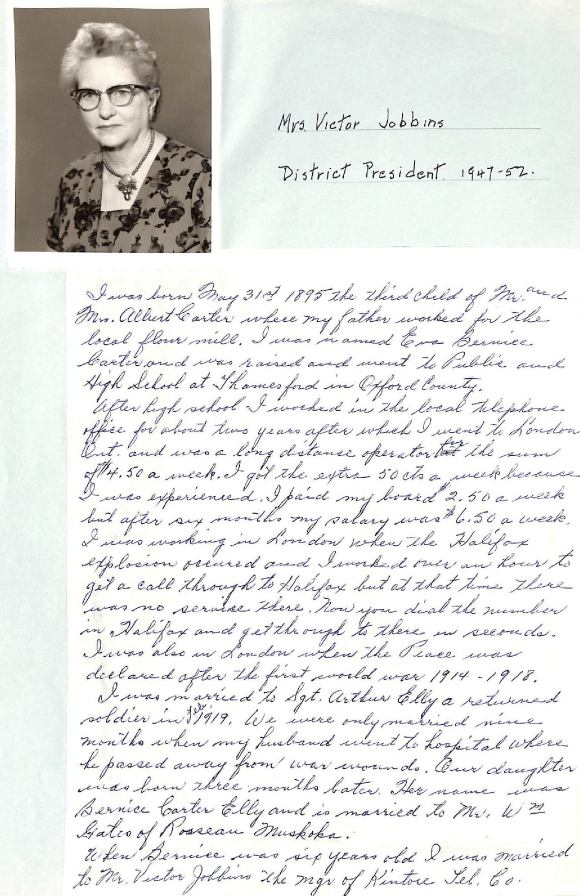 Mrs. Victor Jobbins
District President 1947-52.
I was born May 31st 1895 the third child of Mr. and
Mrs. Albert Carter where my father worked for the
local flour mill. I was named Eva Bernice
Carter and was raised and went to Public and
High School at Thamesford in Oxford County.
After high school I worked in the local telephone
office for about two years after which I went to London
Ont. and was a long distance operator for the sum
of $4.50 a week. I got the extra 50cts a week because
I was experienced. I paid my board $2.50 a week
but after six months my salary was $6.50 a week.
I was working in London when the Halifax
explosion occured and I worked over an hour to
get a call through to Halifax but at that time there
was no service there. Now you dial the number
in Halifax and get through to there in seconds.
I was also in London when the Peace was
declared after the first world war 1914-1918.
I was married to Sgt. Arthur Elly a returned
soldier in Feb 1919. We were only married nine
months when my husband went to hospital where
he passed away from war wounds. Our daughter
was born three months later. Her name was
Bernice Carter Elly and is married to Mr. Wm
Gates of Rosseau Muskoka.
When Bernice was six years old I was married
to Mr. Victor Jobbins the mgr of Kintore Tel. Co.